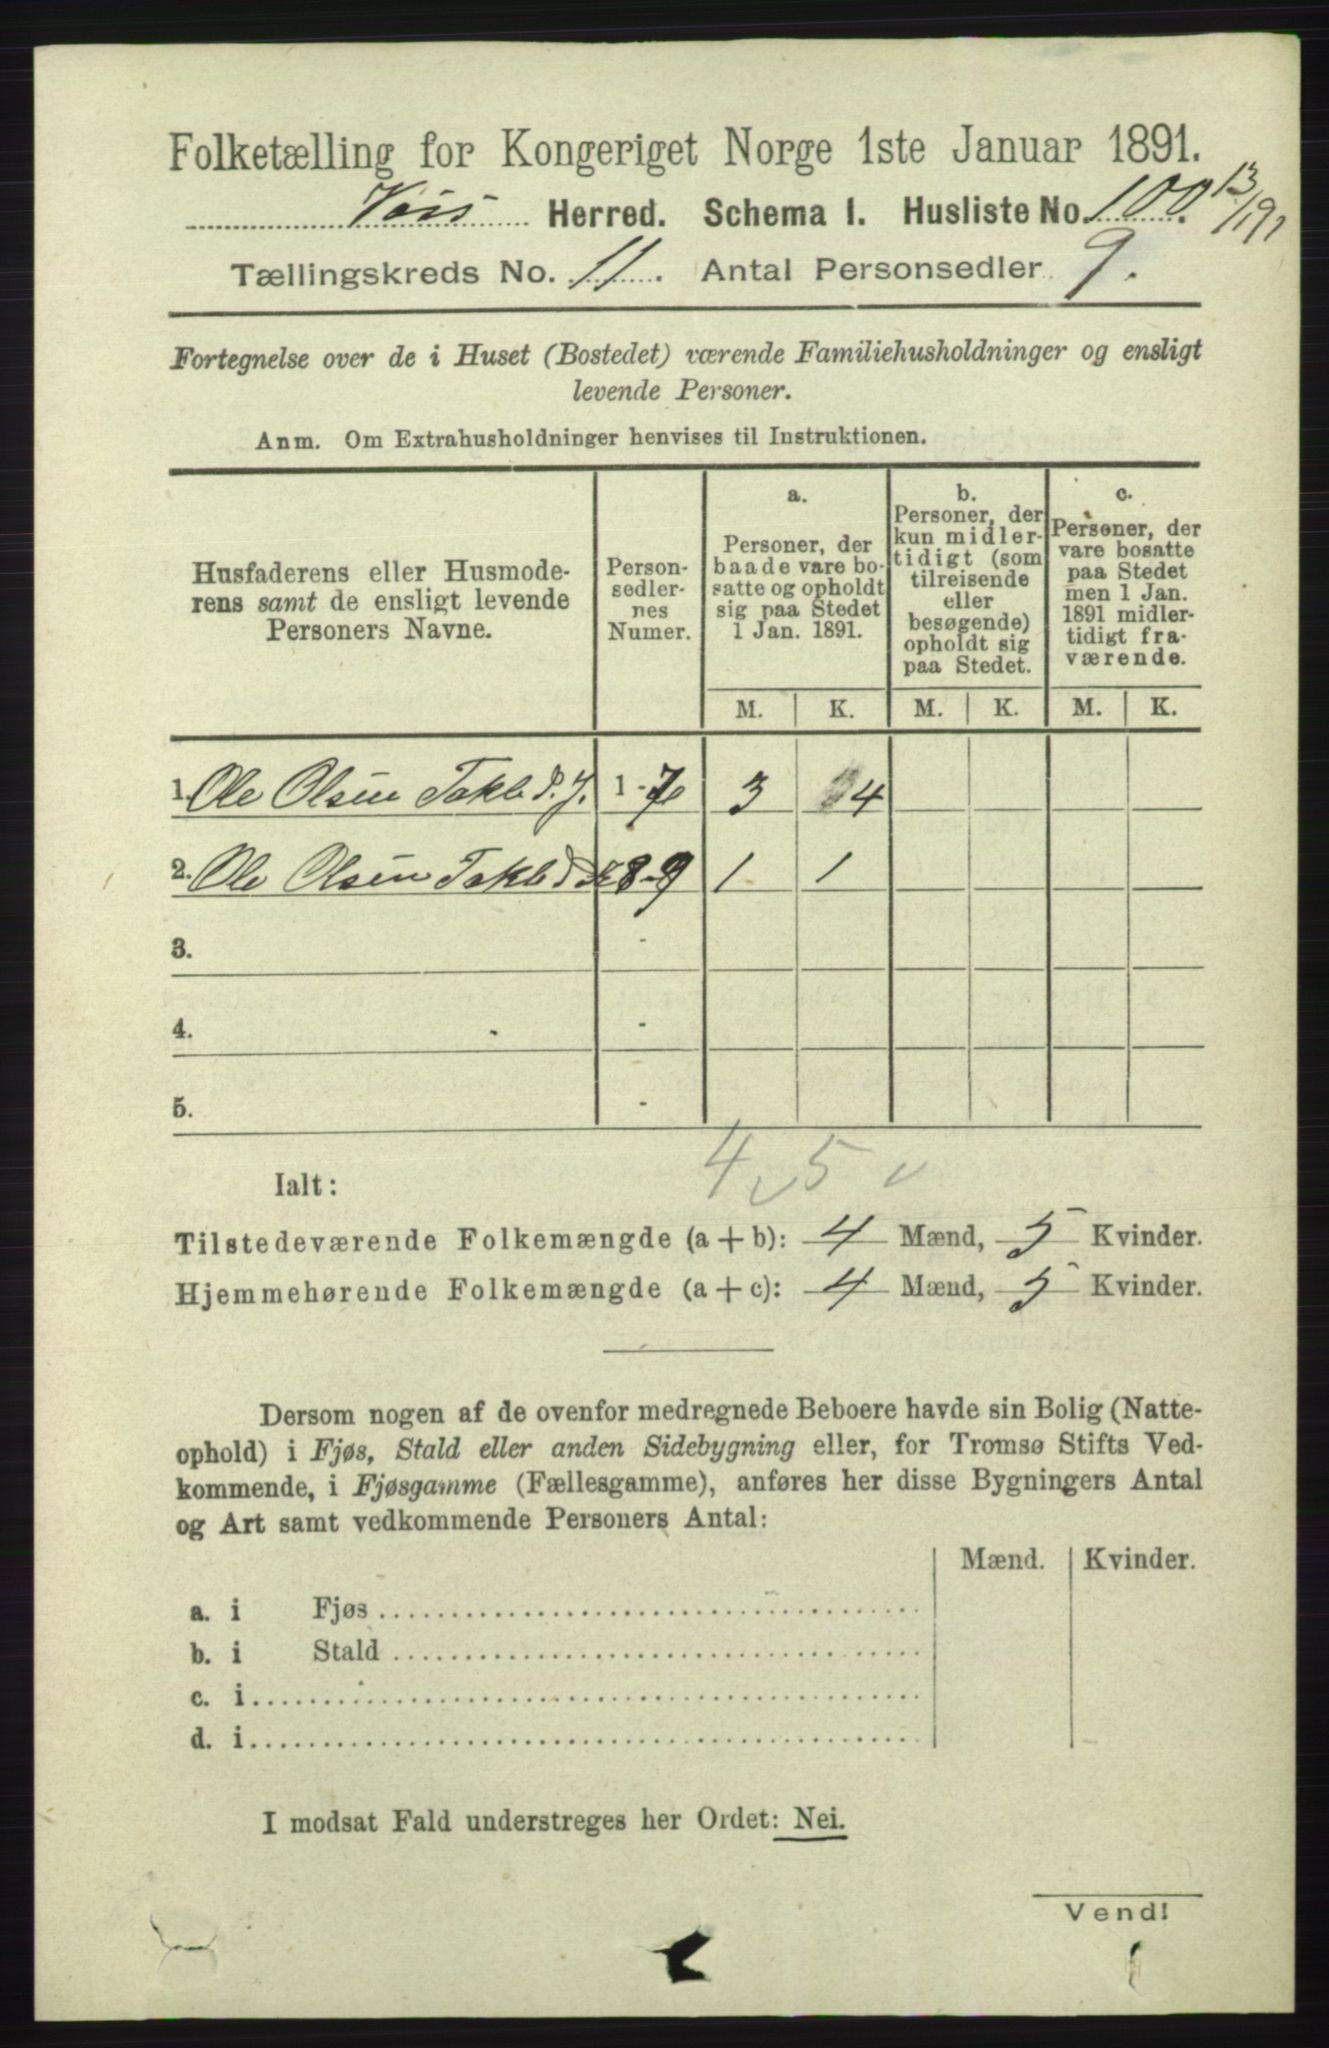 Folketælling for Kongeriget Norge 1ste Januar 1891.
Voss Herred. Schema I. Husliste No. 100. 13/191
Tællingskreds No. 11. Antal Personsedler 9.
Fortegnelse over de i Huset (Bostedet) værende Familiehusholdninger og ensligt
levende Personer.
Anm. Om Extrahusholdninger henvises til Instruktionen.
Husfaderens eller Husmode-
rens samt de ensligt levende
Personers Navne.
Person-
sedler-
nes
Numer.
a.
Personer, der
baade vare bo-
satte og opholdt
sig paa Stedet
1 Jan. 1891.
b.
Personer, der
kun midler-
tidigt (som
tilreisende
eller
besøgende)
opholdt sig
paa Stedet.
c.
Personer, der
vare bosatte
paa Stedet
men 1 Jan.
1891 midler-
tidigt fra-
værende.
M. K. M. K. M. K.
1. Ole Olsen 1-7 3 4
2. Ole Olsen 8-9 1 1
3. -
4. -
5. -
4 5
Ialt:
Tilstedeværende Folkemængde (a+b): 4 Mænd, 5 Kvinder.
Hjemmehørende Folkemængde (a+c): 4 Mænd, 5 Kvinder.
Dersom nogen af de ovenfor medregnede Beboere havde sin Bolig (Natte-
ophold) i Fjøs, Stald eller anden Sidebygning eller, for Tromsø Stifts Ved-
kommende, i Fjøsgamme (Fællesgamme), anføres her disse Bygningers Antal
og Art samt vedkommende Personers Antal:
Mænd. Kvinder.
a. i Fjøs
b. i Stald
c. i
d. i
I modsat Fald understreges her Ordet: Nei.
Vend!